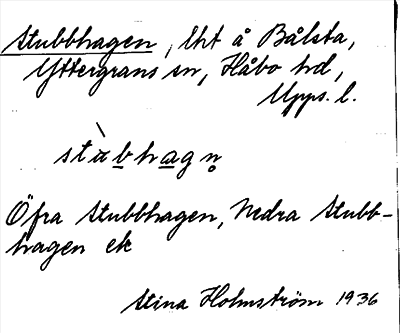 Stubbhagen, lht å Bålsta,
Yttergrans sn, Håbo hd,
Upps. l.
stàbhagn̥
Öfra Stubbhagen, Nedra Stubb-
hagen ek
Stina Holmström 1936